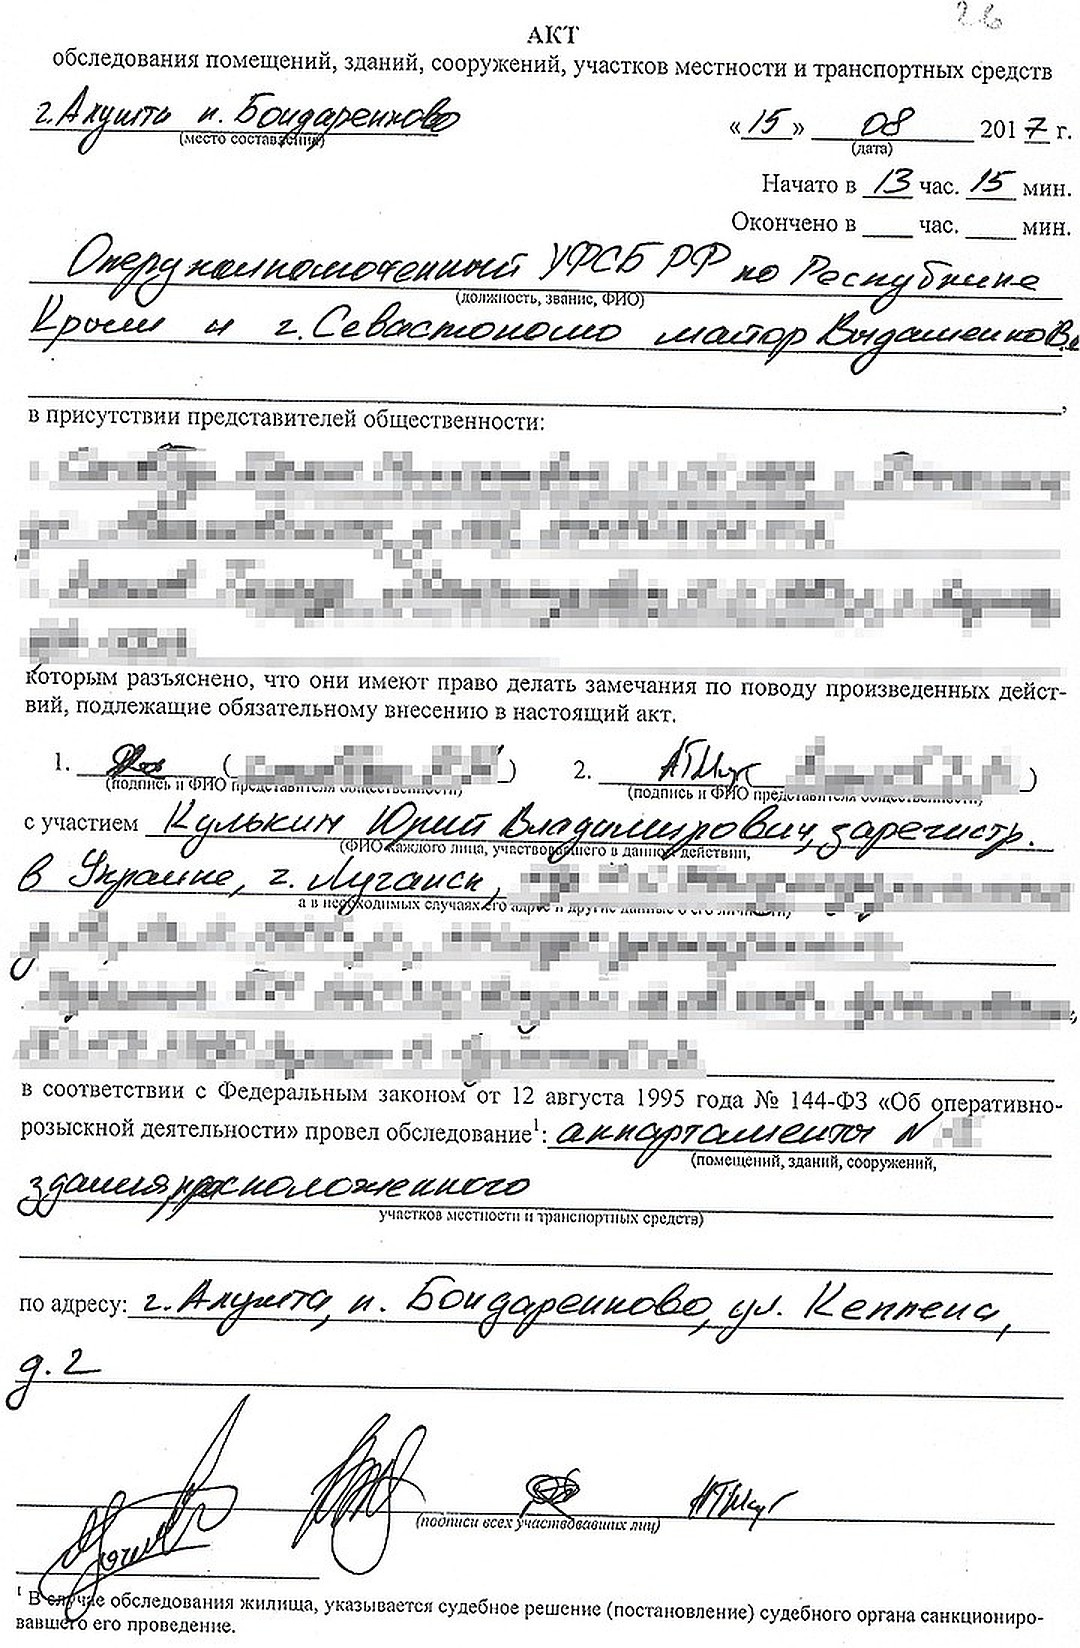 26
АКТ
обследования помещений, зданий, сооружений, участков местности и транспортных средств
г. Алушта п. Бондаренково
(место составления)
«15» 08 2017 г.
(дата)
Начато в 13 час. 15 мин.
Окончено в ____ час. ____ мин.
Оперуполномоченный УФСБ РФ по Республике
(должность, звание, ФИО)
Крым и г. Севастополю майор
в присутствии представителей общественности:
которым разъяснено, что они имеют право делать замечания по поводу произведенных дейст-
вий, подлежащие обязательному внесению в настоящий акт.
1. ( ) 2. )
(подпись и ФИО представителя общественности) (подпись и ФИО представителя общественности)
с участием Кулькин Юрий Владимирович, зарегистр.
(ФИО каждого лица, участвовавшего в данном действии,
в Украине, г. Луганск,
а в необходимых случаях его адрес и другие данные о его личности)
в соответствии с Федеральным законом от 12 августа 1995 года № 144-ФЗ «Об оперативно-
розыскной деятельности» провел обследование¹: аппартаменты №
(помещений, зданий, сооружений,
здания, расположенного
участков местности и транспортных средств)
по адресу: г. Алушта, п. Бондаренково, ул. Кеппена,
д. 2
(подписи всех участвовавших лиц)
¹ В случае обследования жилища, указывается судебное решение (постановление) судебного органа санкциониро-
вавшего его проведение.